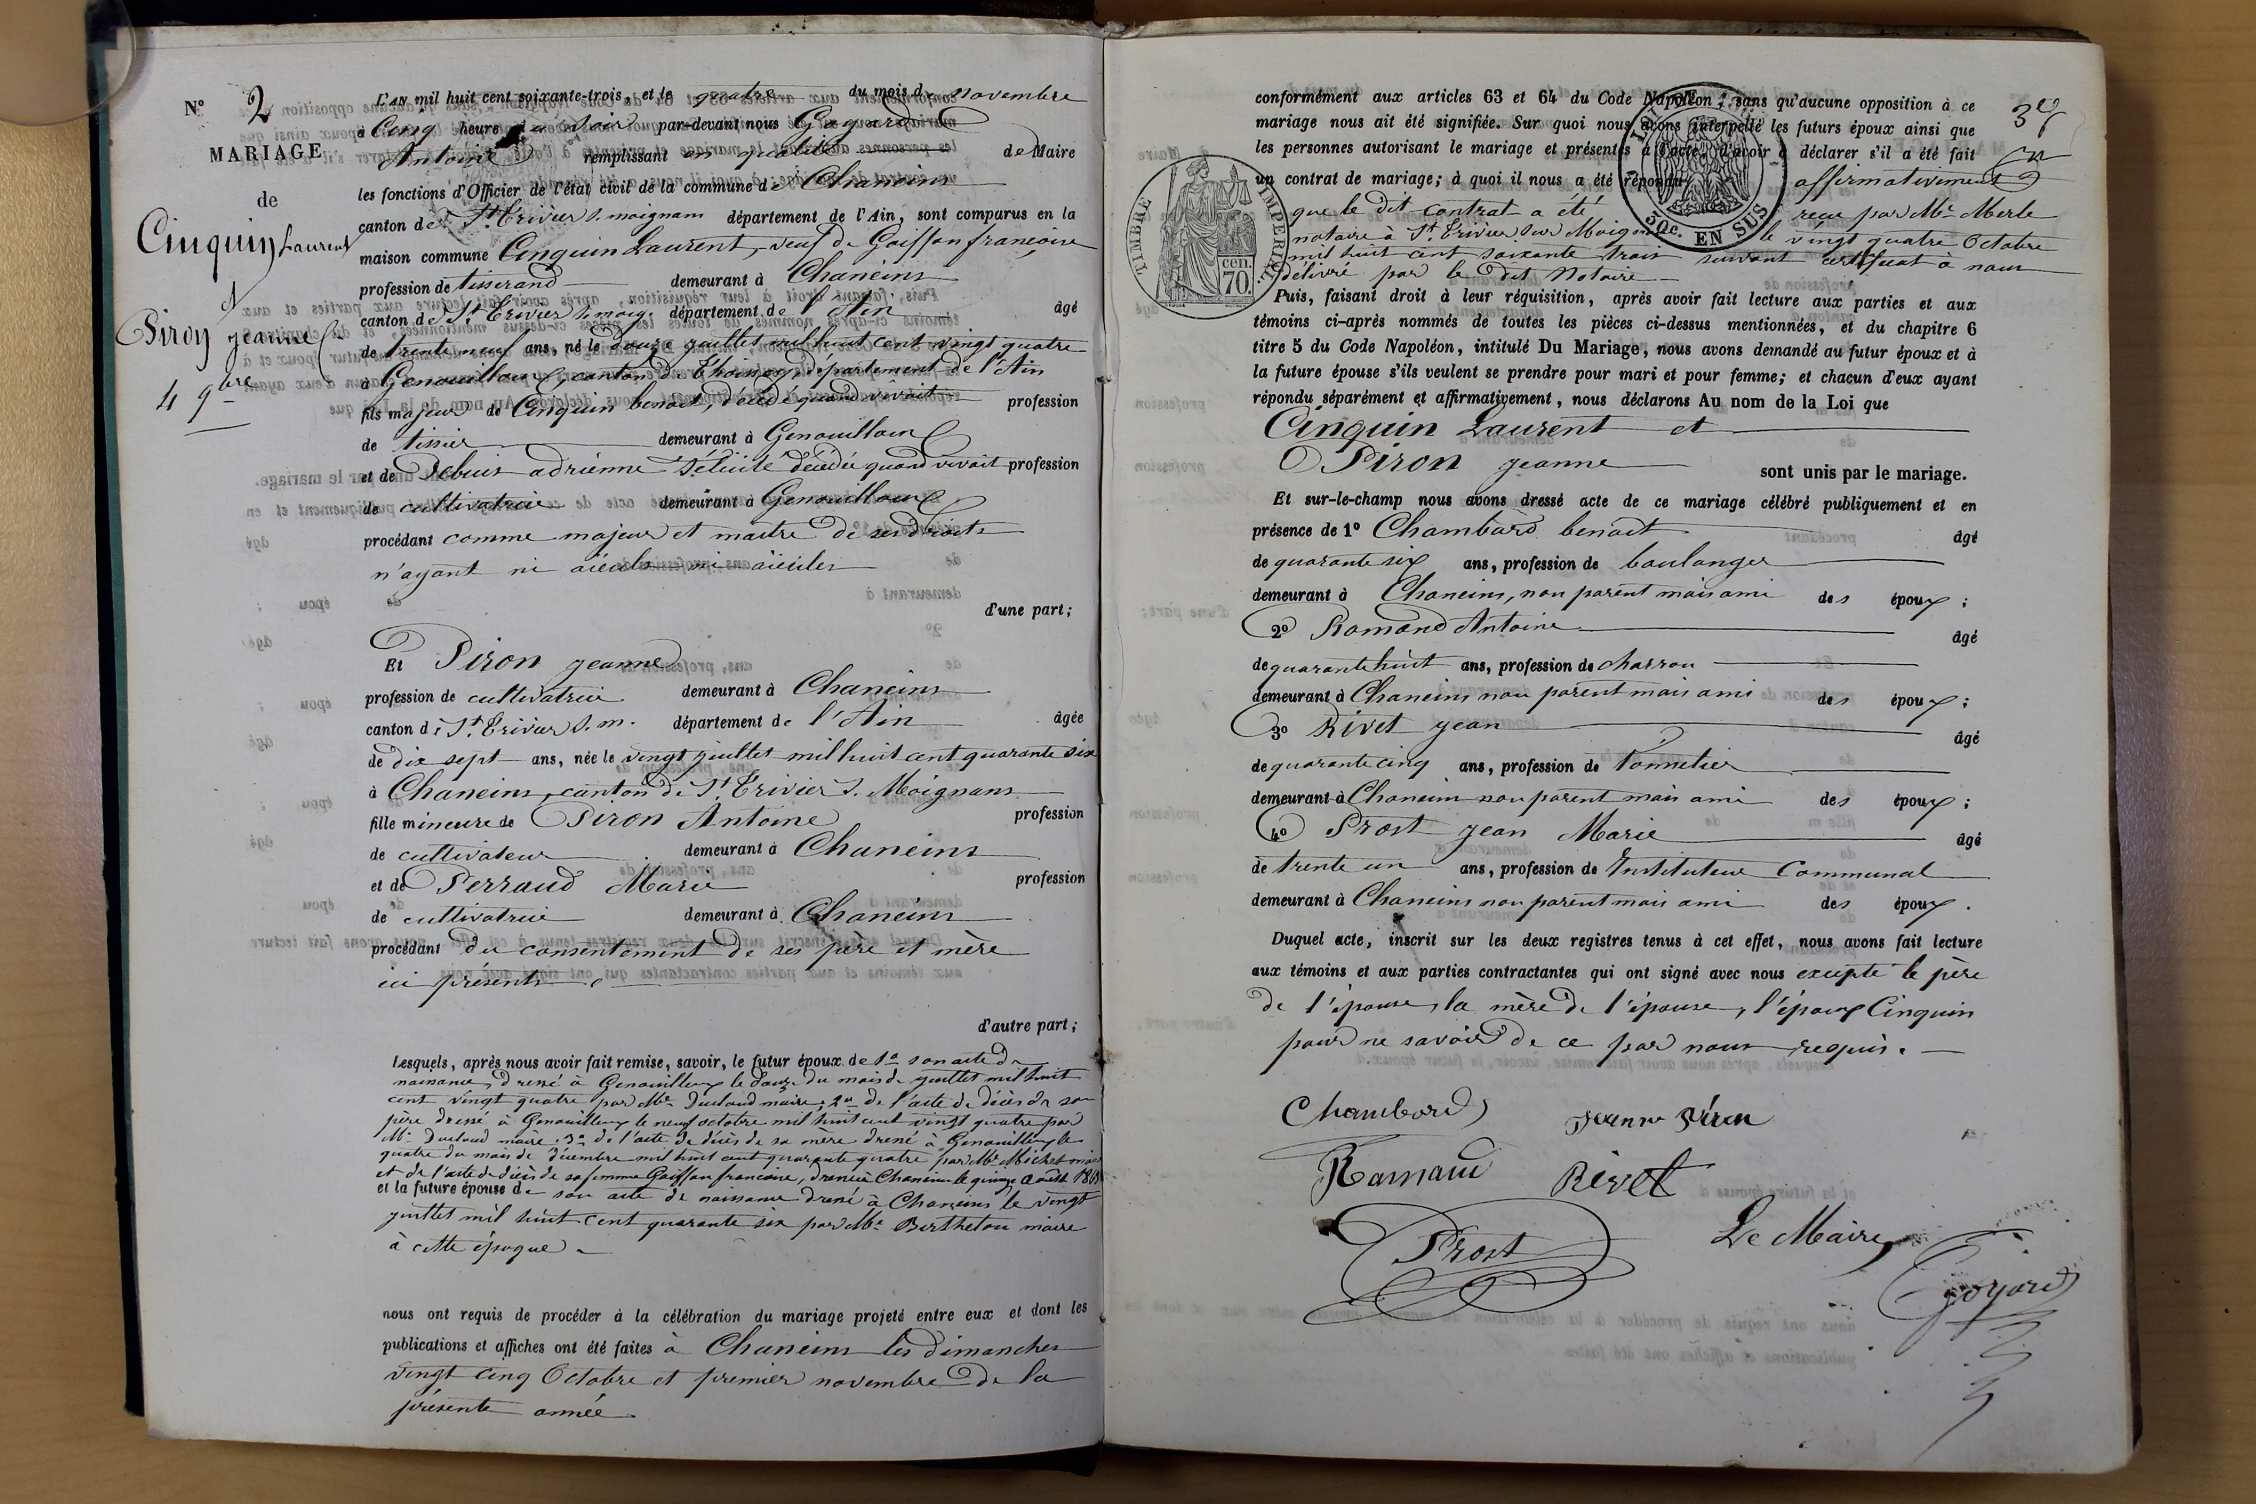 N° 2
MARIAGE
de
Cinquin Laurent
et
Piron jeanne
4 9bre
L'AN mil huit cent soixante-trois, et le quatre du mois de novembre
à Cinq heure du soir par-devant nous Goyard
Antoine remplissant en qualité de Maire
les fonctions d'Officier de l'état civil de la commune de Chaneins
canton de St Trivier s. moignans département de l'Ain, sont comparus en la
maison commune Cinquin Laurent, veuf de Goiffon françoise
profession de tisserand demeurant à Chaneins
canton de St Trivier s. moig. département de l'Ain âgé
de trente neuf ans, né le douze juillet mil huit cent vingt quatre
à Genouilleux, canton de Thoissey, département de l'Ain
fils majeur de Cinquin benoit, décédé quand vivait profession
de tissier demeurant à Genouilleux
et de Debuis adrienne félicité décédée quand vivait profession
de cultivatrice demeurant à Genouilleux
procédant comme majeur et maitre de ses droits
n'ayant ni aïeuls ni aïeules
d'une part;
Et Piron jeanne
profession de cultivatrice demeurant à Chaneins
canton de St Trivier s. m. département de l'Ain âgée
de dix sept ans, née le vingt juillet mil huit cent quarante six
à Chaneins, canton de St Trivier s. Moignans
fille mineure de Piron Antoine profession
de cultivateur demeurant à Chaneins
et de Perraud Marie profession
de cultivatrice demeurant à Chaneins
procédant du consentement de ses père et mère
ici présents
d'autre part;
Lesquels, après nous avoir fait remise, savoir, le futur époux de 1° son acte de
naissance, dressé à Genouilleux le douze du mois de juillet mil huit
cent vingt quatre par Mr maire, 2° de l'acte de décès de son
père dressé à Genouilleux le neuf octobre mil huit cent vingt quatre par
Mr maire. 3° de l'acte de décès de sa mère dressé à Genouilleux le
quatre du mois de décembre mil huit cent quarante quatre par Mr Michet maire
et de l'acte de décès de sa femme Goiffon francoise, dressé à Chaneins le quinze août
et la future épouse de son acte de naissance dressé à Chaneins le vingt
juillet mil huit cent quarante six par Mr Berthelon maire
à cette époque
nous ont requis de procéder à la célébration du mariage projeté entre eux et dont les
publications et affiches ont été faites à Chaneins les dimanches
vingt cinq Octobre et premier novembre de la
présente année
conformément aux articles 63 et 64 du Code Napoléon; sans qu'aucune opposition à ce
mariage nous ait été signifiée. Sur quoi nous avons interpellé les futurs époux ainsi que
les personnes autorisant le mariage et présentes à l'acte, d'avoir à déclarer s'il a été fait
un contrat de mariage; à quoi il nous a été répondu affirmativement
que le dit contrat a été reçu par Me Merle
notaire à St Trivier sur Moignans le vingt quatre Octobre
mil huit cent soixante trois suivant certificat à nous
délivré par le dit Notaire
TIMBRE IMPERIAL
cen. 70.
30c. EN SUS
Puis, faisant droit à leur réquisition, après avoir fait lecture aux parties et aux
témoins ci-après nommés de toutes les pièces ci-dessus mentionnées, et du chapitre 6
titre 5 du Code Napoléon, intitulé Du Mariage, nous avons demandé au futur époux et à
la future épouse s'ils veulent se prendre pour mari et pour femme; et chacun d'eux ayant
répondu séparément et affirmativement, nous déclarons Au nom de la Loi que
Cinquin Laurent et
Piron jeanne sont unis par le mariage.
Et sur-le-champ nous avons dressé acte de ce mariage célébré publiquement et en
présence de 1° Chambard benoit âgé
de quarante six ans, profession de boulanger
demeurant à Chaneins, non parent mais ami des époux;
2° Romand Antoine âgé
de quarante huit ans, profession de charron
demeurant à Chaneins non parent mais ami des époux;
3° Rivet jean âgé
de quarante cinq ans, profession de tonnelier
demeurant à Chaneins non parent mais ami des époux;
4° Prost jean Marie âgé
de trente un ans, profession de Instituteur Communal
demeurant à Chaneins non parent mais ami des époux.
Duquel acte, inscrit sur les deux registres tenus à cet effet, nous avons fait lecture
aux témoins et aux parties contractantes qui ont signé avec nous excepté le père
de l'épouse, la mère de l'épouse, l'époux Cinquin
pour ne savoir de ce par nous requis.
Chambard Jeanne Piron
Ramand Rivet
Prost Le Maire
Goyard